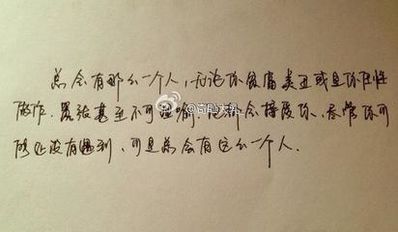 总会有那么一个人，无论你贫富美丑或是你任性
做作．嚣张甚至不可理喻．他都会接受你．尽管你可
能还没有遇到，可是总会有这么一个人．